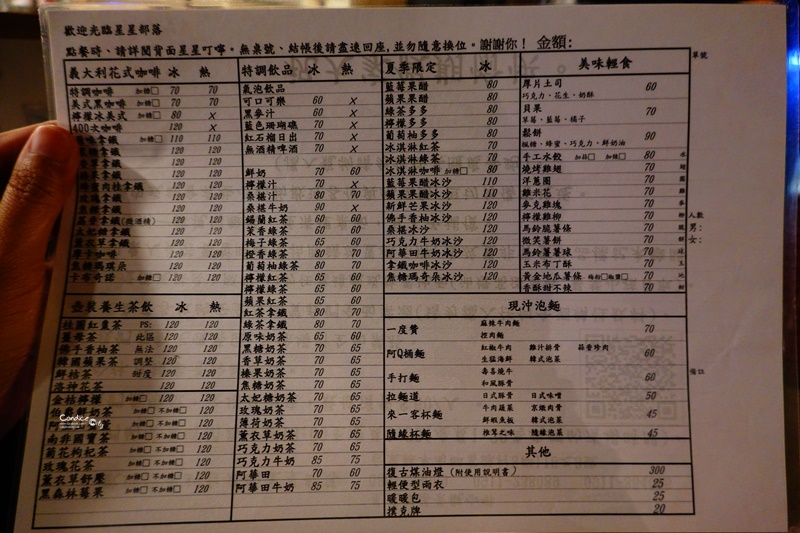 歡迎光臨星星部落
點餐時、請詳閱背面星星叮嚀。無桌號、結帳後請盡速回座,並勿隨意換位。謝謝你! 金額:
單號
義大利花式咖啡 冰 熱
特調咖啡 加糖□ 70 70
美式黑咖啡 70 70
檸檬冰美式 加糖□ 80 X
400次咖啡 120 X
拿鐵 加糖□ 110 110
拿鐵 120 120
拿鐵 120 120
拿鐵 120 120
肉桂拿鐵 120 120
玫瑰拿鐵 120 120
拿鐵 120 120
拿鐵(微酒精) 120 120
太妃糖拿鐵 120 120
薰衣草拿鐵 120 120
摩卡咖啡 120 120
焦糖瑪琪朵 120 120
卡布奇諾 加糖□ 120 120
壺裝養生茶飲 冰 熱
桂圓紅棗茶 PS: 120 120
薑母茶 此區 120 120
佛手香柚茶 無法 120 120
韓國蘋果茶 調整 120 120
鮮桔茶 甜度 120 120
洛神花茶 120 120
金桔檸檬 加糖□ 不加糖□ 120
奶茶 加糖□ 不加糖□ 120
加糖□ 不加糖□ 120
南非國寶茶 加糖□ 不加糖□ 120
菊花枸杞茶 加糖□ 不加糖□ 120
玫瑰花茶 加糖□ 不加糖□ 120
薰衣草舒壓 加糖□ 不加糖□ 120
黑森林莓果 加糖□ 不加糖□ 120
特調飲品 冰 熱
氣泡飲品
可口可樂 60 X
黑麥汁 60 X
藍色珊瑚礁 70 X
紅石榴日出 70 X
無酒精啤酒 70 X
鮮奶 70 60
檸檬汁 70 X
桑椹汁 80 70
桑椹牛奶 90 X
錫蘭紅茶 60 60
茉香綠茶 60 60
梅子綠茶 65 60
橙香綠茶 80 70
葡萄柚綠茶 80 70
檸檬紅茶 65 60
檸檬綠茶 65 60
蘋果紅茶 65 60
紅茶拿鐵 80 70
綠茶拿鐵 80 70
原味奶茶 65 60
黑糖奶茶 70 65
香草奶茶 70 65
榛果奶茶 70 65
焦糖奶茶 70 65
太妃糖奶茶 70 65
玫瑰奶茶 70 65
薄荷奶茶 70 65
薰衣草奶茶 70 65
巧克力奶茶 70 65
巧克力牛奶 85 75
阿華田 70 60
阿華田牛奶 85 75
夏季限定 冰
藍莓果醋 80
蘋果果醋 80
綠茶多多 80
檸檬多多 80
葡萄柚多多 80
冰淇淋紅茶 70
冰淇淋綠茶 70
冰淇淋咖啡 加糖□ 80
藍莓果醋冰沙 110
蘋果果醋冰沙 110
新鮮芒果冰沙 120
佛手香柚冰沙 120
桑椹冰沙 120
巧克力牛奶冰沙 120
阿華田牛奶冰沙 120
拿鐵咖啡冰沙 120
焦糖瑪奇朵冰沙 120
美味輕食
厚片土司 60
巧克力、花生、奶酥
貝果 70
草莓、藍莓、橘子
鬆餅 90
楓糖、蜂蜜、巧克力、鮮奶油
手工水餃 加蒜□ 加辣□ 80
燒烤雞翅 70
洋蔥圈 70
雞米花 70
麥克雞塊 70
檸檬雞柳 70
馬鈴脆薯條 70
微笑薯餅 70
馬鈴薯薯球 70
玉米布丁酥 70
黃金地瓜薯條 梅粉□椒鹽□ 70
香酥甜不辣 70
人數
男:
女:
現沖泡麵
一度贊 麻辣牛肉麵 70
控肉麵
阿Q桶麵 紅椒牛肉 雞汁排骨 蒜香珍肉 60
生猛海鮮 韓式泡菜
手打麵 壽喜燒牛 60
和風豚骨
拉麵道 日式豚骨 日式味噌 50
來一客杯麵 牛肉蔬菜 京燉肉骨 45
鮮蝦魚板 韓式泡菜
隨緣杯麵 椎茸之味 隨緣泡菜 45
備註
其他
復古煤油燈(附使用說明書) 300
輕便型雨衣 25
暖暖包 25
撲克牌 20